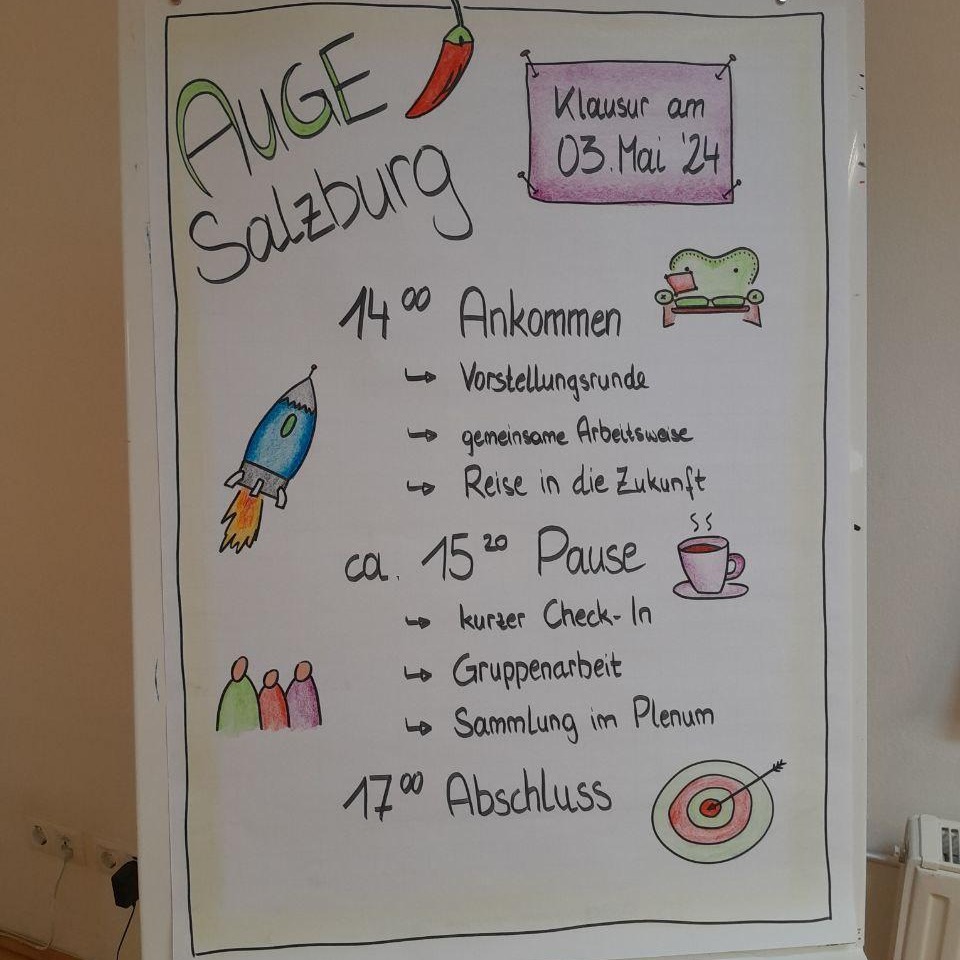 AUGE
Salzburg
Klausur am
03. Mai '24
14⁰⁰ Ankommen
↳ Vorstellungsrunde
↳ gemeinsame Arbeitsweise
↳ Reise in die Zukunft
ca. 15²⁰ Pause
↳ kurzer Check-In
↳ Gruppenarbeit
↳ Sammlung im Plenum
17⁰⁰ Abschluss